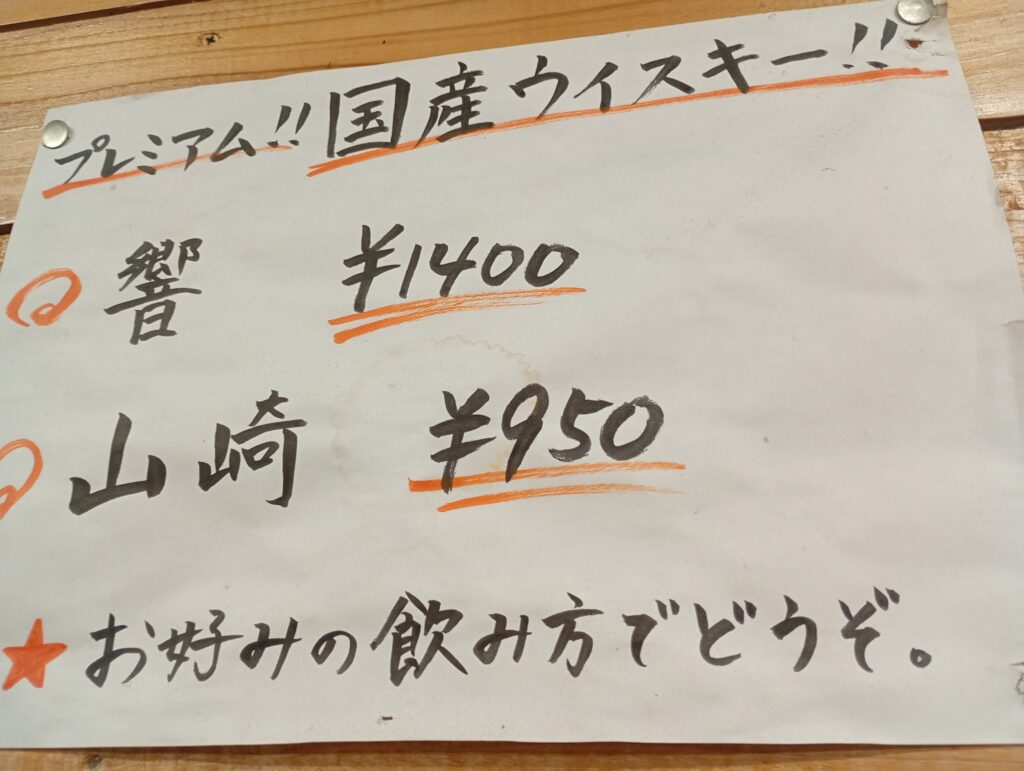 プレミアム!! 国産ウイスキー!!
響 ¥1400
山崎 ¥950
★お好みの飲み方でどうぞ。